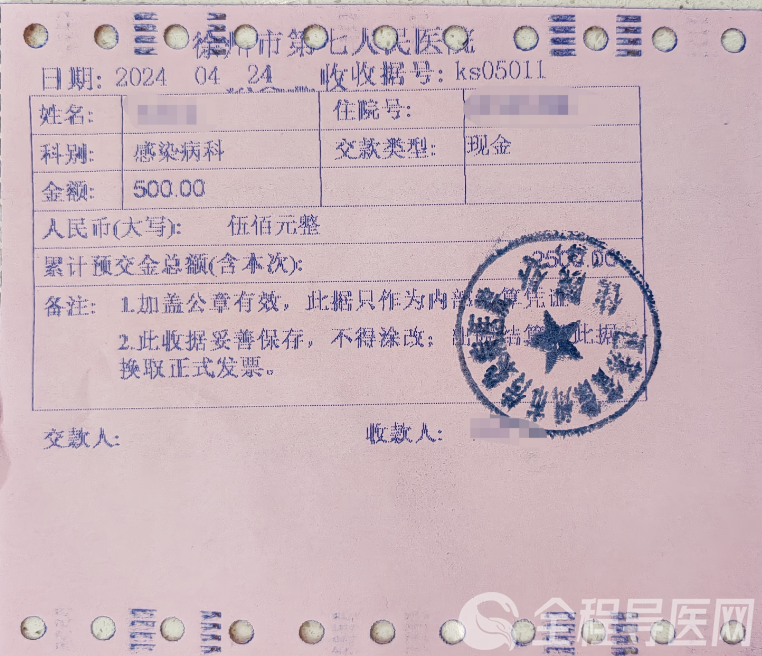 徐州市第七人民医院
日期: 2024 04 24 收收据号: ks05011
姓名: 住院号:
科别: 感染病科 交款类型: 现金
金额: 500.00
人民币(大写): 伍佰元整
累计预交金总额(含本次): 2500.00
备注: 1.加盖公章有效，此据只作为内部 算凭证
2.此收据妥善保存，不得涂改；出院结算 此据
换取正式发票。
交款人: 收款人:
住院处
全程导医网